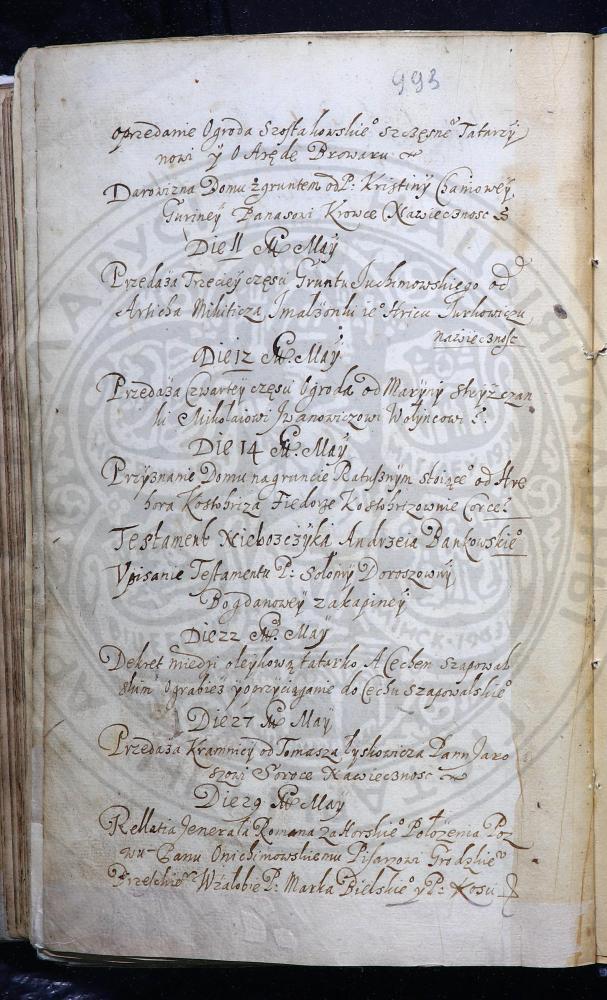 993
oprzedanie Ogroda Szostakowskie° szczęsne° Tatarzÿ
nowi ÿ O Aręde Browaru
Darowizna Domu zgruntem od P: Kristinÿ Chanioweÿ
Gurineÿ Banasowi Krowce Nawiecznosc
Die 11 Maÿ
Przedaża Trzecieÿ częsci Gruntu Juchimowskiego od
Artiecha Mikiticza Jmałżonki ie° Hricu Jurkowiczu
nawiecznosc
Die 12 Maÿ
Przedaża Czwarteÿ częsci Ogroda od Marÿnÿ Strÿżczan
ki Mikołaiowi Jwanowiczowi Wołÿncowi
Die 14 Maÿ
Przÿznanie Domu nagruncie Ratusznÿm stoiące° od Hre
hora Kostobriza Fiedorze Kostobrizownie Corce
Testament Nieboszczÿka Andrzeia Bankowskie°
Vpisanie Testamentu P: Sołomÿ Doroszownÿ
Bogdanoweÿ Zakapineÿ
Die 22 Maÿ
Dekret miedzi oleÿkową tatarko A Cechem Szapował
skim Ograbież ÿ oprzyciąganie do Cechu Szapowalskie°
Die 27 Maÿ
Przedaża Kramnicÿ od Tomasza Łyskowicza Panu Jaro
szowi Soroce Nawiecznosc
Die 29 Maÿ
Rellatia Jenerała Romana Zahorskie° Położenia Poz
wu Panu Onichimowskiemu Pisarzowi Grodzkie°
Brzeskie° Wżałobie P: Marka Bielskie° ÿ P: Kosci